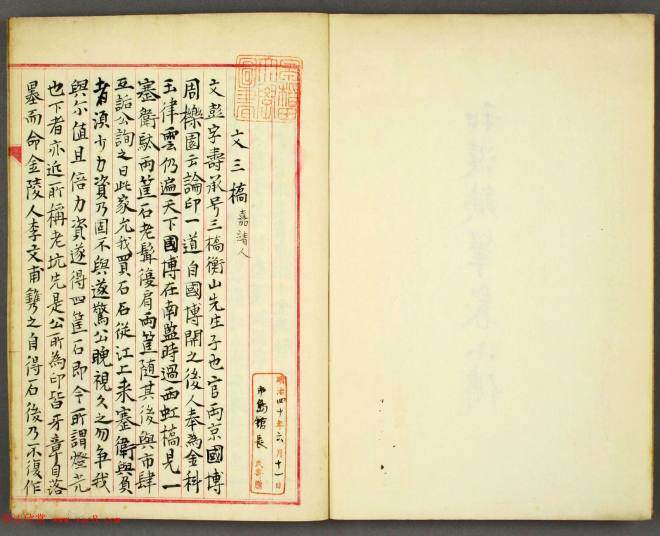 文三橋 嘉靖人
文彭字壽承号三橋衡山先生子也官両京國博
周櫟園云論印一道自國博開之後人奉為金科
玉律雲仍遍天下國博在南監時過西虹橋見一
蹇衛駄両筐石老髯復肩両筐随其後與市肆
互詬公詢之曰此家允我買石石従江上来蹇衛與負
者須少力資乃固不與遂驚公晚視久之勿争我
與尓值且倍力資遂得四筐石即今所謂燈光
也下者亦近所稱老坑先是公所為印皆牙章自落
墨而命金陵人李文甫鐫之自得石後乃不復作
明治四十年六月十一日
市島館長
氏寄贈